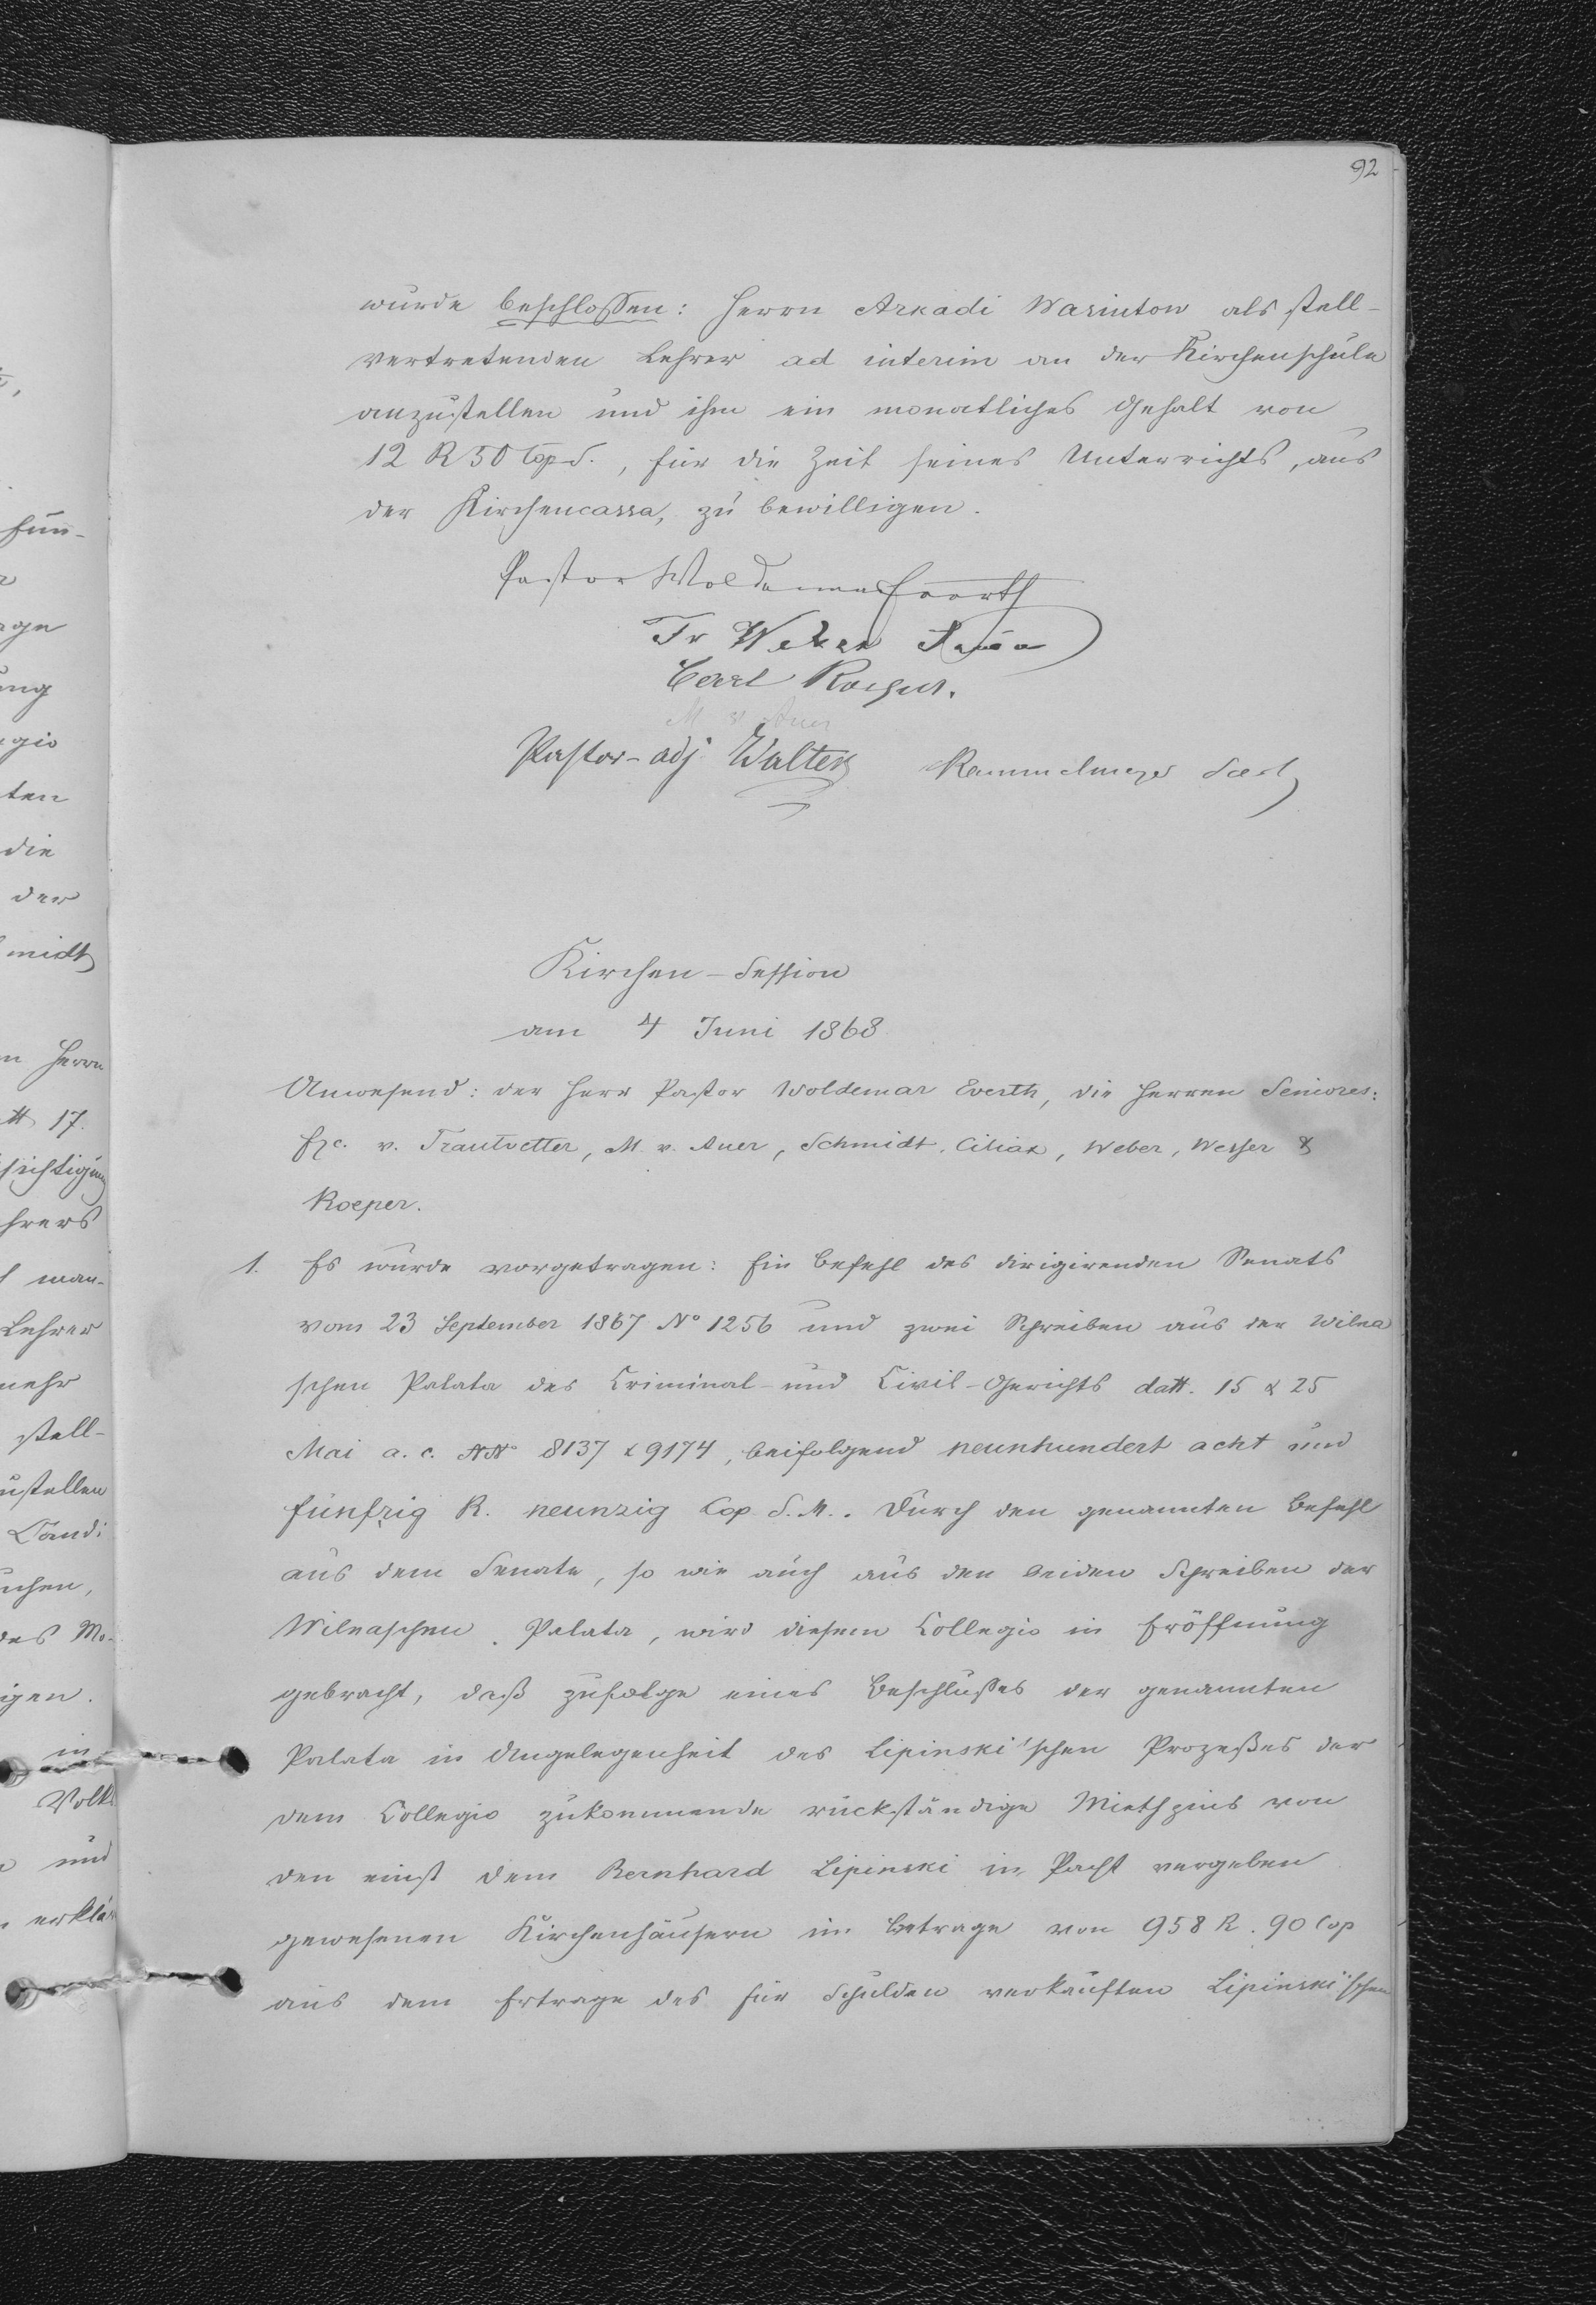 92
wurde beschloßen: Herrn Arkadi Wasinton als stell-
vertretenden Lehrer ad interim an der Kirchenschule
anzustellen und ihm ein monatliches Gehalt von
12 R 50 Cop S., für die Zeit seines Unterrichts, aus
der Kirchencassa, zu bewilligen.
Pastor Woldemar Everth
Fr Weber
Carl Roeper.
M v Auer
Pastor-adj. Walter Rammelmeyer Secr
Kirchen-Session
am 4 Juni 1868
Anwesend: der Herr Pastor Woldemar Everth, die Herren Seniores:
Exc. v. Trautvetter, M. v. Auer, Schmidt, Ciliax, Weber, Wesser &
Roeper.
1. Es wurde vorgetragen: Ein Befehl des dirigirenden Senats
vom 23 September 1867 No 1256 und zwei Schreiben aus der Wilna
schen Palata des Criminal- und Civil-Gerichts datt. 15 & 25
Mai a. c. NNo 8137 & 9174, beifolgend neunhundert acht und
fünfzig R. neunzig Cop S. M.. Durch den genannten Befehl
aus dem Senate, so wie auch aus den beiden Schreiben der
Wilnaschen Palata, wird diesem Collegio in Eröffnung
gebracht, daß zufolge eines Beschlußes der genannten
Palata in Angelegenheit des Lipinski'schen Prozeßes der
dem Collegio zukommende rückständige Miethzins von
den einst dem Bernhard Lipinski in Pacht vergeben
gewesenen Kirchenhäusern im Betrage von 958 R. 90 Cop
aus dem Ertrage des für Schulden verkauften Lipinski'schen